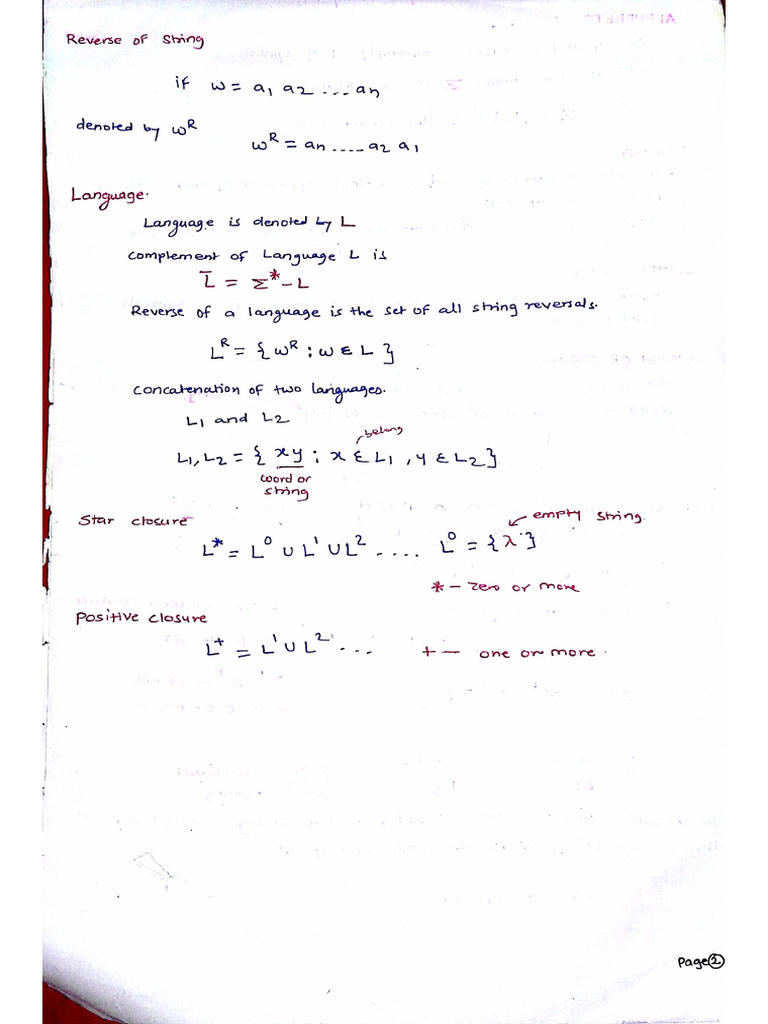 Reverse of String
if w = a₁ a₂ ... aₙ
denoted by wᴿ
wᴿ = aₙ ..... a₂ a₁
Language.
Language is denoted by L
Complement of Language L is
L̅ = Σ* - L
Reverse of a language is the set of all string reversals.
Lᴿ = { wᴿ : w ∈ L }
Concatenation of two languages.
L₁ and L₂
belong
L₁, L₂ = { xy : x ∈ L₁ , y ∈ L₂ }
word or
string
Star closure
empty string.
L* = L⁰ ∪ L¹ ∪ L² ..... L⁰ = { λ }
* - zero or more
Positive closure
L⁺ = L¹ ∪ L² ... + — one or more.
Page ②